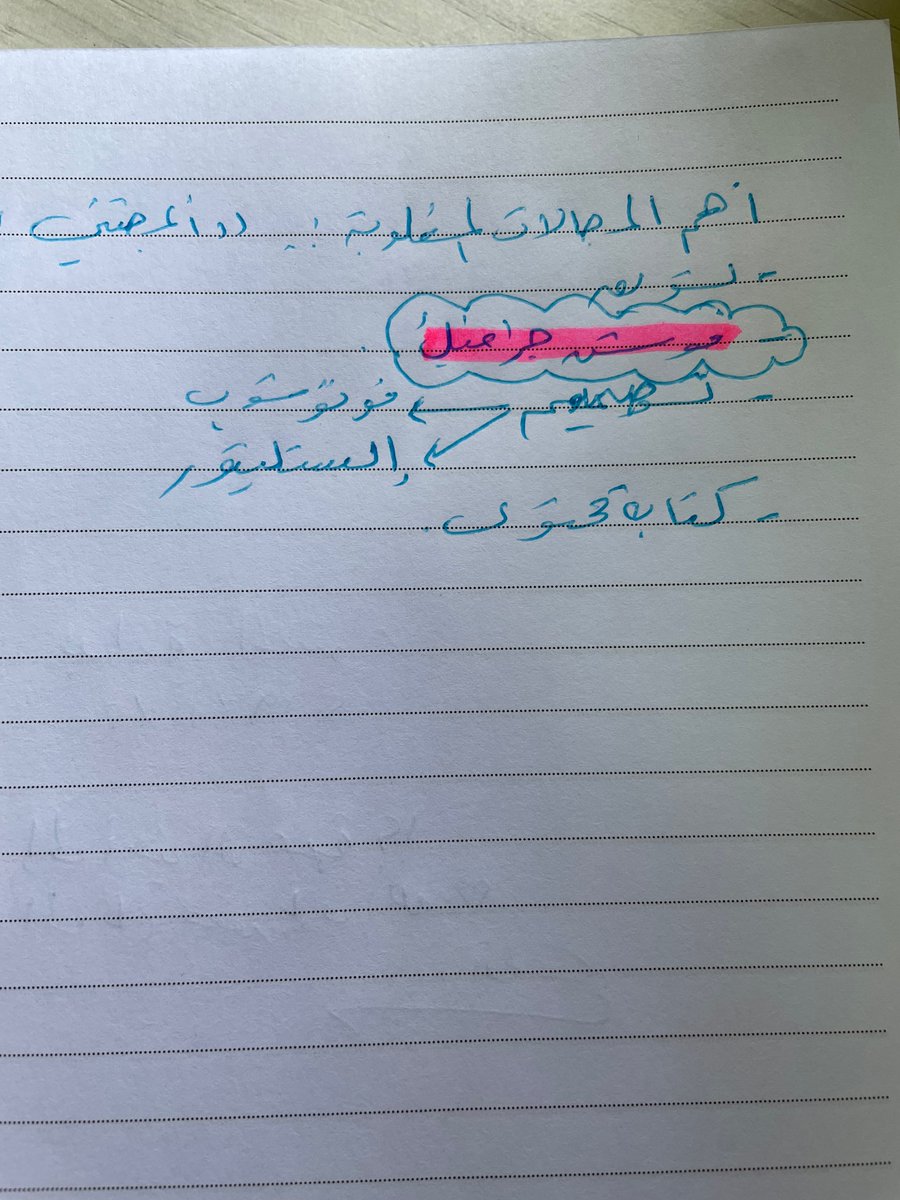 أهم المجالات المطلوبة :
- تسويق
- موشن جرافيك
- تصميم فوتوشوب
إلستليتور
- كتابة محتوى.